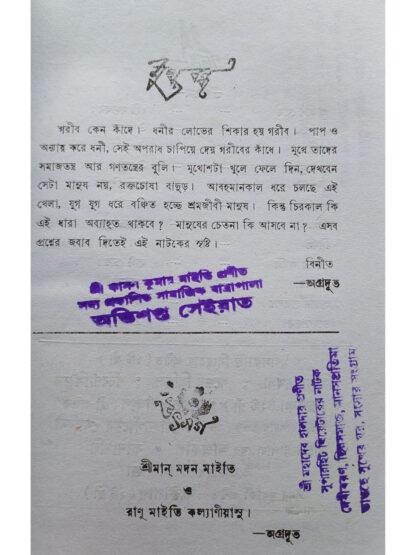 গরীব কেন কাঁদে। ধনীর লোভের শিকার হয় গরীব। পাপ ও
অন্যায় করে ধনী, সেই অপরাধ চাপিয়ে দেয় গরীবের কাঁধে। মুখে তাদের
সমাজতন্ত্র আর গণতন্ত্রের বুলি। মুখোশটা খুলে ফেলে দিন, দেখবেন
সেটা মানুষ নয়, রক্তচোষা বাদুড়। আবহমানকাল ধরে চলছে এই
খেলা, যুগ যুগ ধরে বঞ্চিত হচ্ছে শ্রমজীবী মানুষ। কিন্তু চিরকাল কি
এই ধারা অব্যাহত থাকবে? মানুষের চেতনা কি আসবে না? এসব
প্রশ্নের জবাব দিতেই এই নাটকের সৃষ্টি।
বিনীত
—অগ্রদূত
শ্রী কানন কুমার মাইতি প্রণীত
সদ্য প্রকাশিত সামাজিক যাত্রাপালা
অভিশপ্ত সেইরাত
উৎসর্গ
শ্রীমান্ মদন মাইতি
ও
রাণু মাইতি কল্যাণীয়াসু।
—অগ্রদূত
শ্রী মহাদেব হালদার প্রণীত
সুপারহিট থিয়েটারের নাটক
দেবীবরণ, মানসপ্রতিমা
ভাঙছে সুখের ঘর, সংসার সংগ্রাম